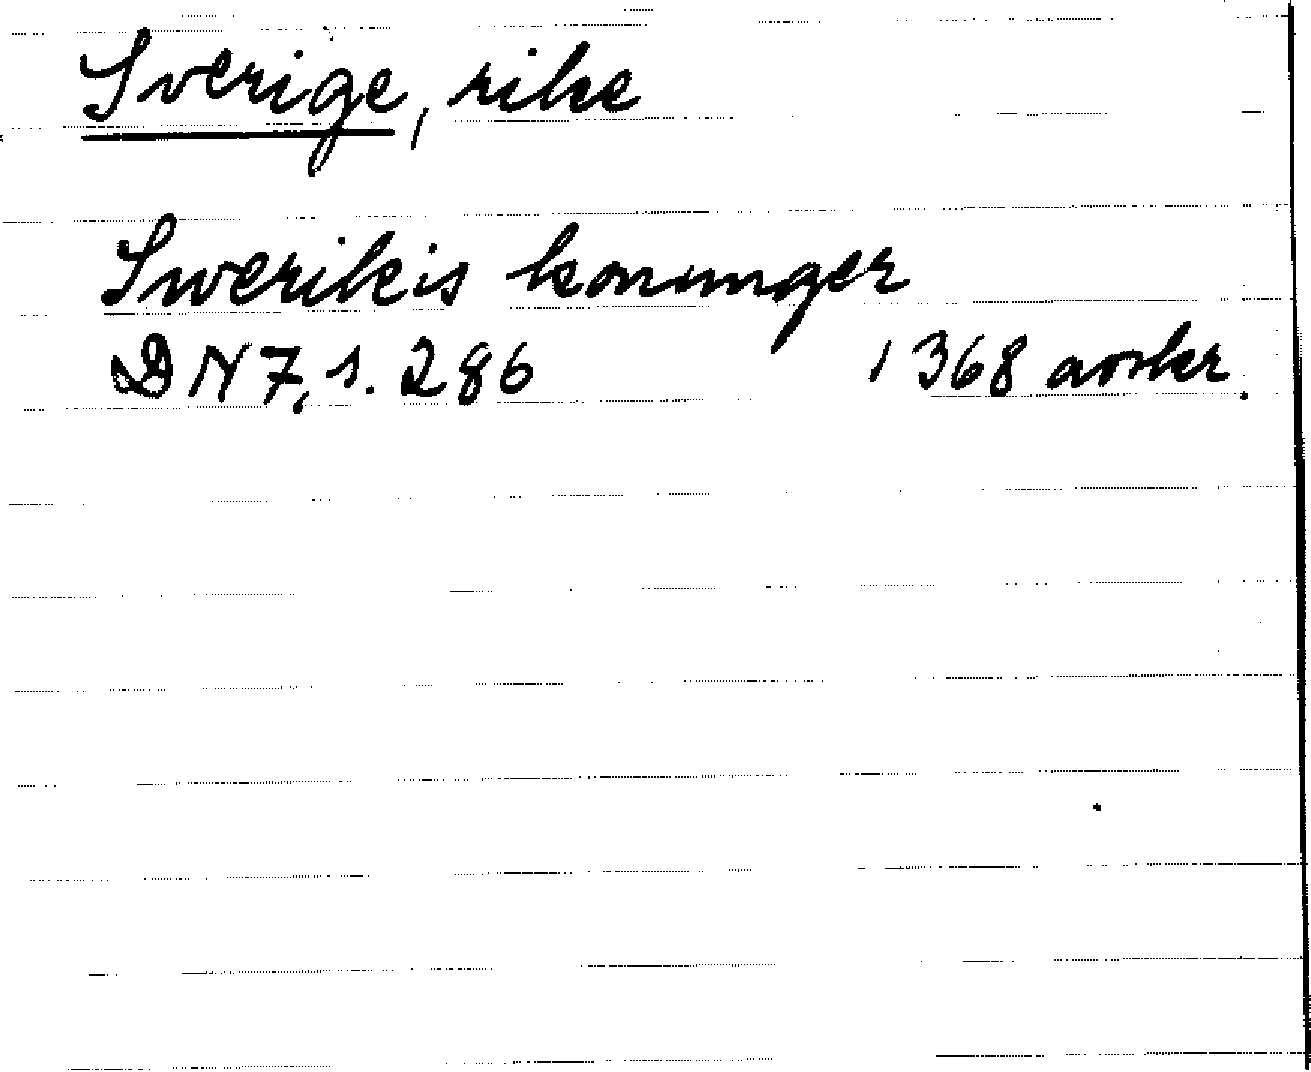 Sverige, rike
Swerikis konunger
DN 7, s. 286 1368 avskr.